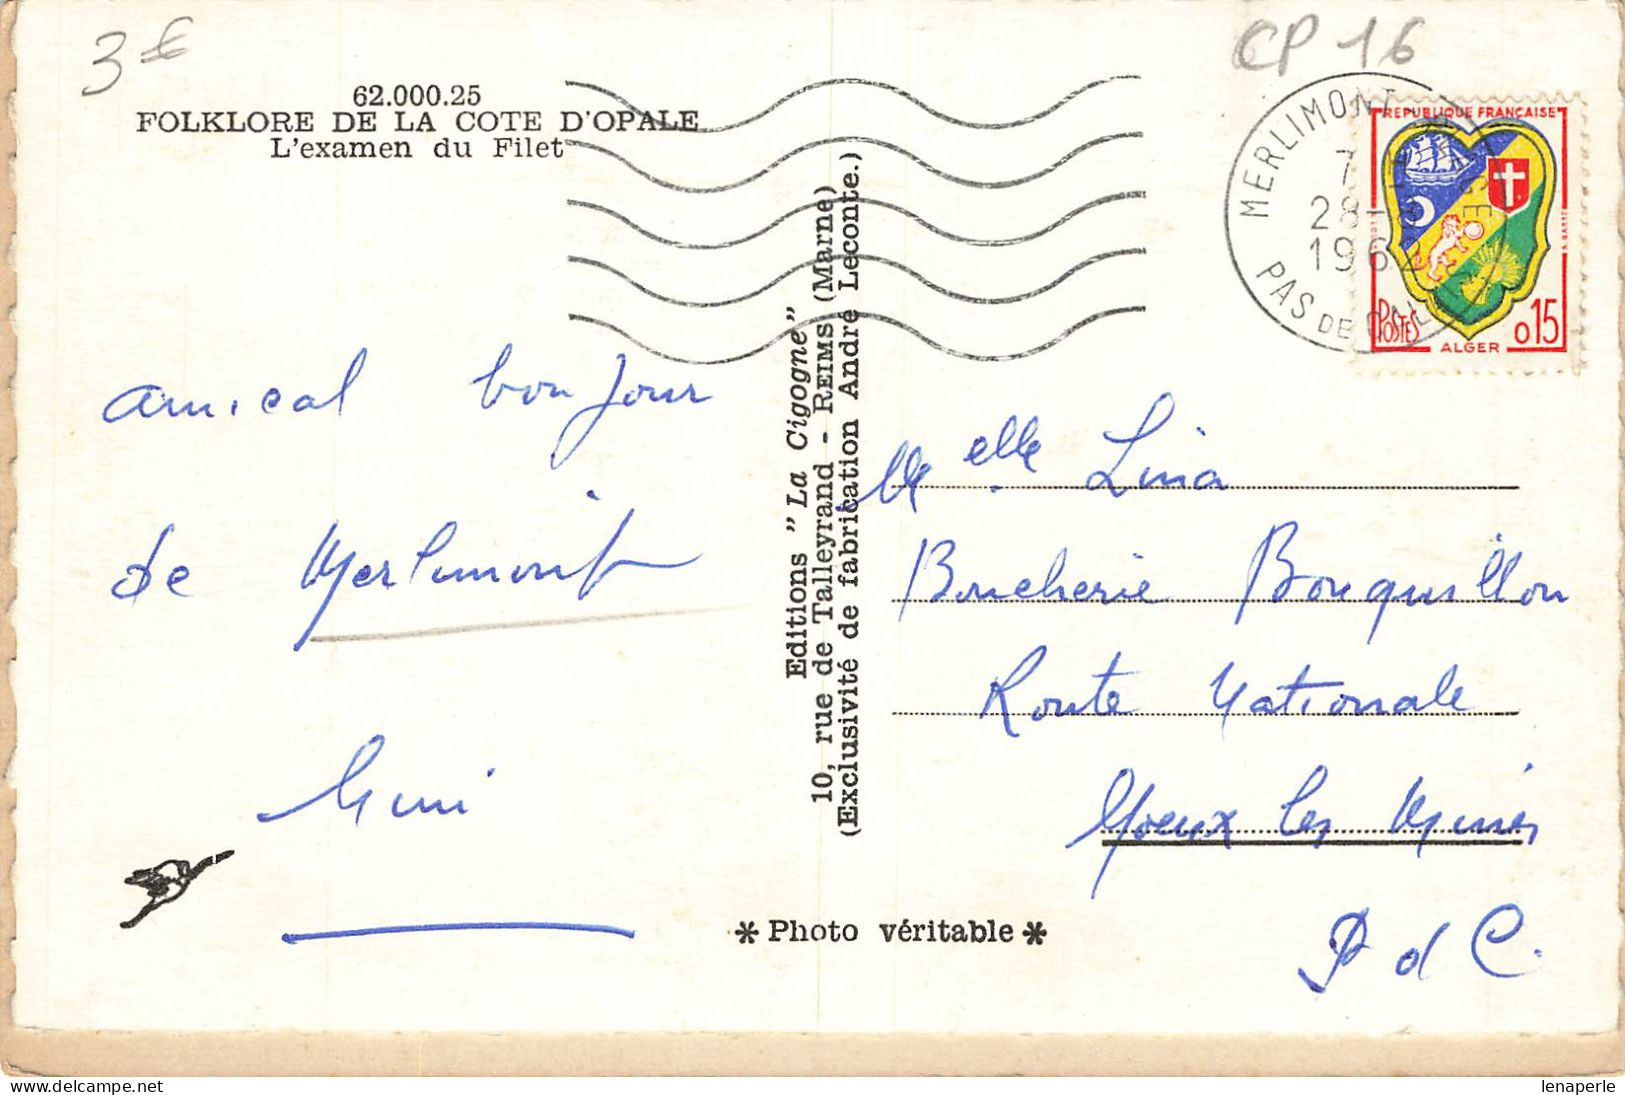 3 €
CP 16
62.000.25
FOLKLORE DE LA COTE D'OPALE
L'examen du Filet
MERLIMONT-PLAGE
7 H
28-8
1962
PAS DE CALAIS
REPUBLIQUE FRANÇAISE
POSTES
0,15
ALGER
amical bonjour
de Merlimont
Mimi
Editions "La Cigogne"
10, rue de Talleyrand - REIMS (Marne)
(Exclusivité de fabrication André Leconte.)
Melle Lina
Boucherie Bouquillon
Route Nationale
Noeux les Mines
P d C.
* Photo véritable *
lenaperle